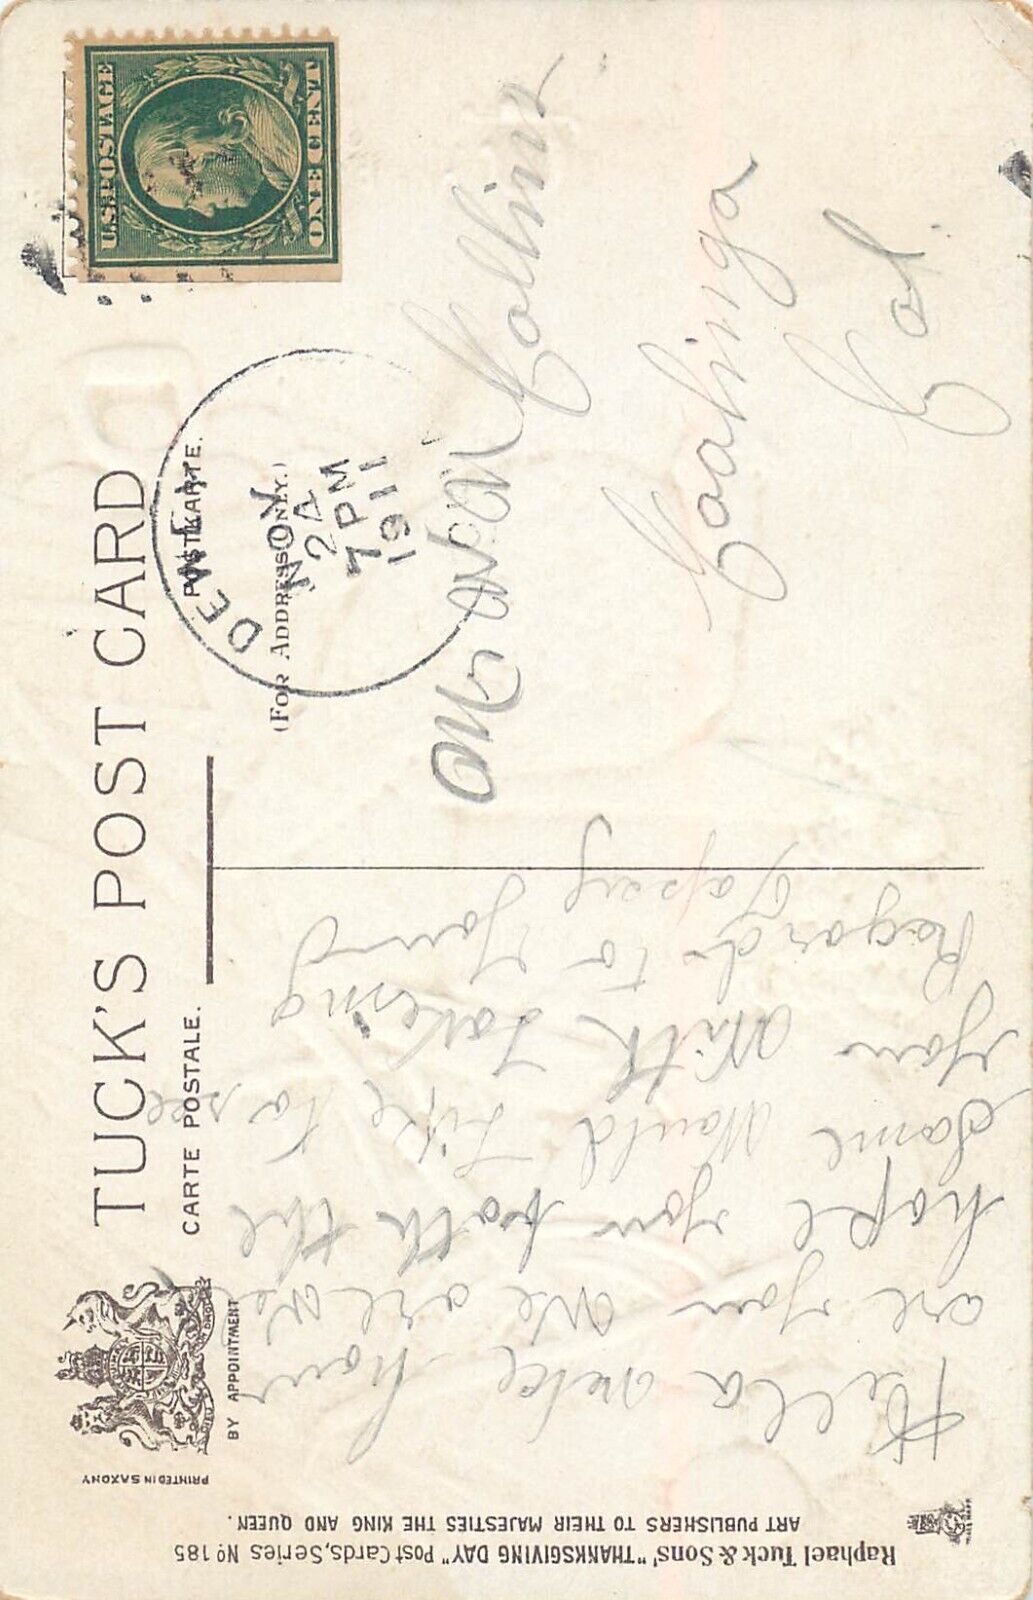 TUCK'S POST CARD
CARTE POSTALE.
POSTKARTE.
(FOR ADDRESS ONLY.)
BY APPOINTMENT
PRINTED IN SAXONY
Raphael Tuck & Sons' "THANKSGIVING DAY" Post Cards, Series No 185
ART PUBLISHERS TO THEIR MAJESTIES THE KING AND QUEEN.
U.S. POSTAGE
ONE CENT
NOV
2A
7 PM
1911
Mr Collins
Coalinga
Cal.
Hello how
are you we are well
hope you both the
same Would Like to see
you With
Regards to